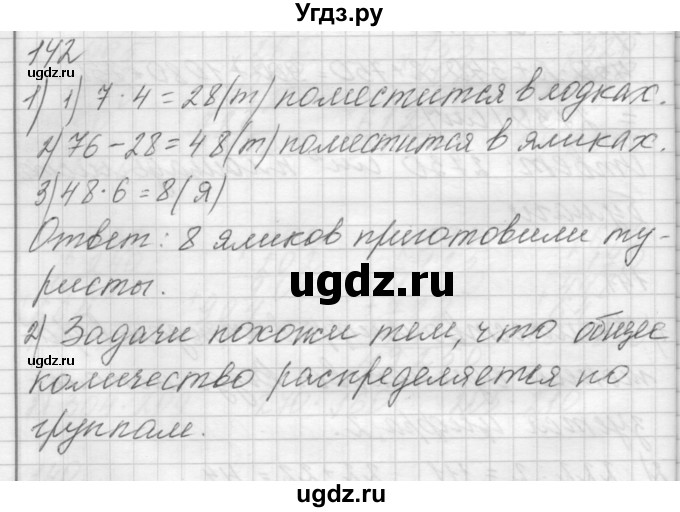 Угдз.ру
142
ugdz.ru
1) 1) 7 · 4 = 28 (т) поместится в лодках.
2) 76 - 28 = 48 (т) поместится в яликах.
3) 48 · 6 = 8 (я)
Ответ: 8 яликов приготовили ту-
ugdz.ru
ристы.
ugdz.ru
2) Задачи похожи тем, что общее
ugdz.ru
количество распределяется по
группам.
ugdz.ru